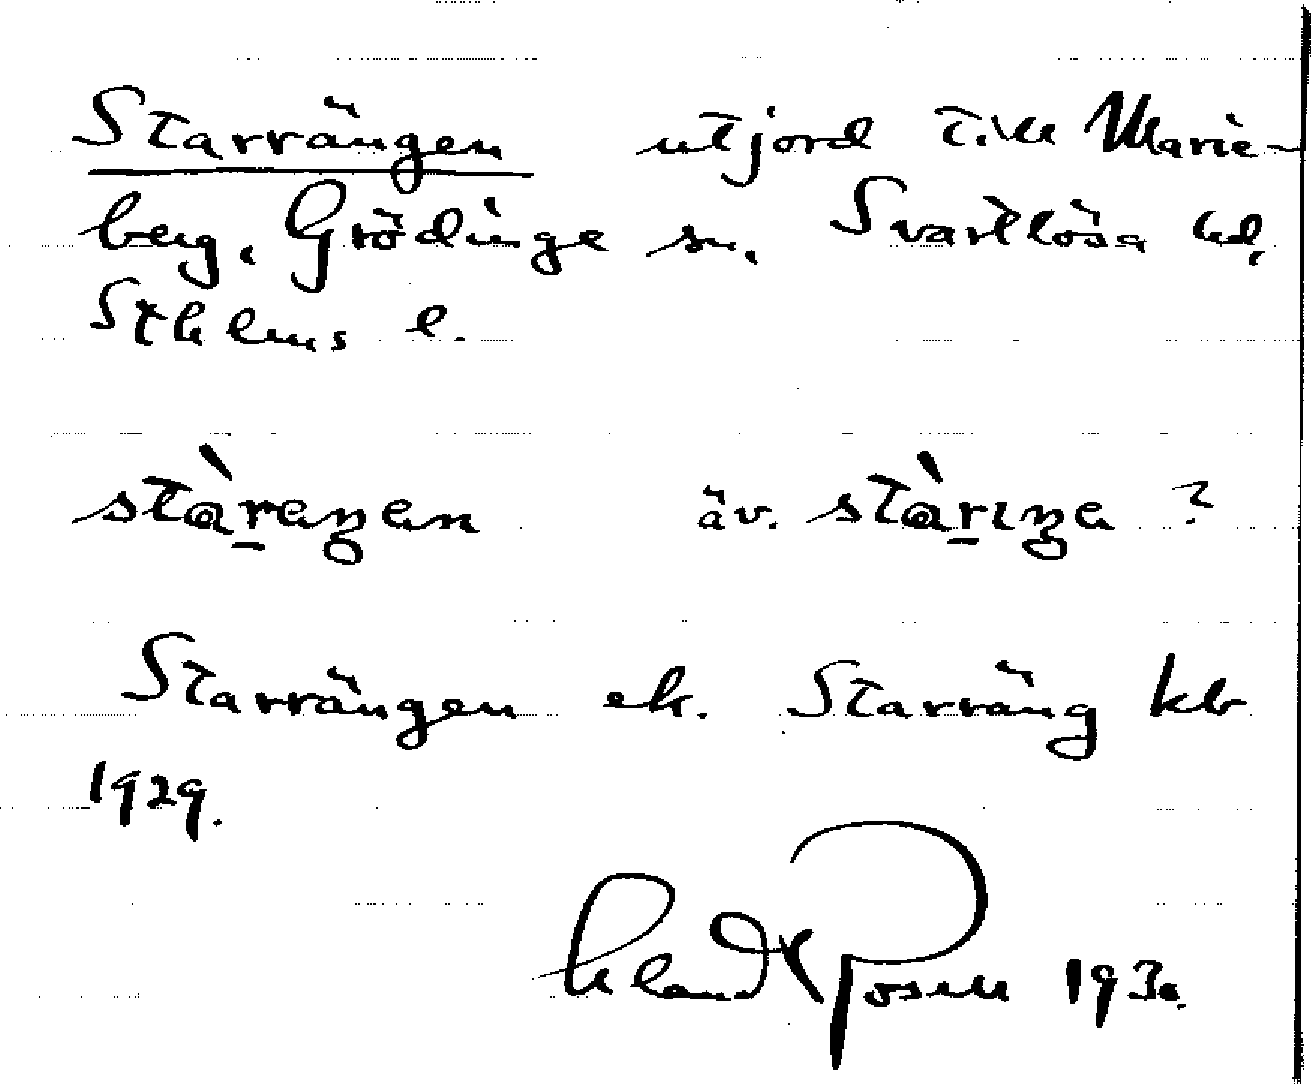 Starrängen utjord till Marie-
berg, Grödinge sn. Svartlösa hd,
Sthlms l.
stàrеŋen äv. stàrıŋe ?
Starrängen ek. Starräng kb
1929.
Rosell 1930.